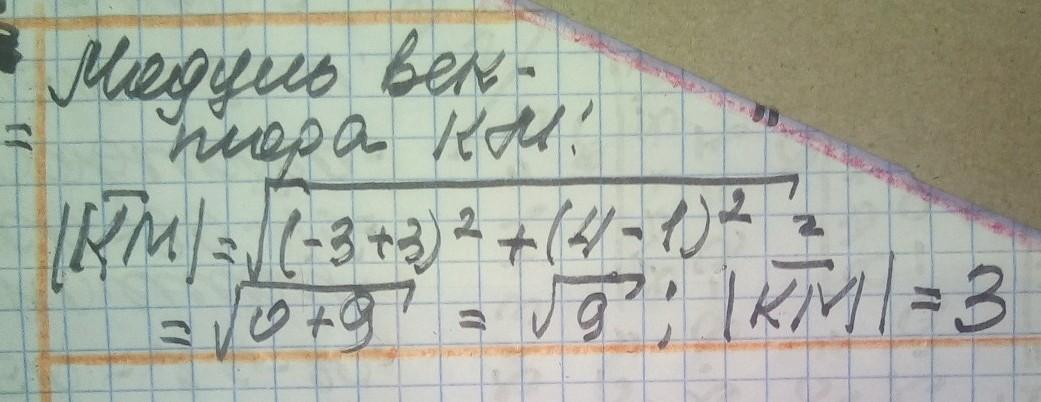 Модуль век-
тора КМ:
|KM| = √(-3+3)² + (4-1)² =
= √0+9 = √9; |KM| = 3